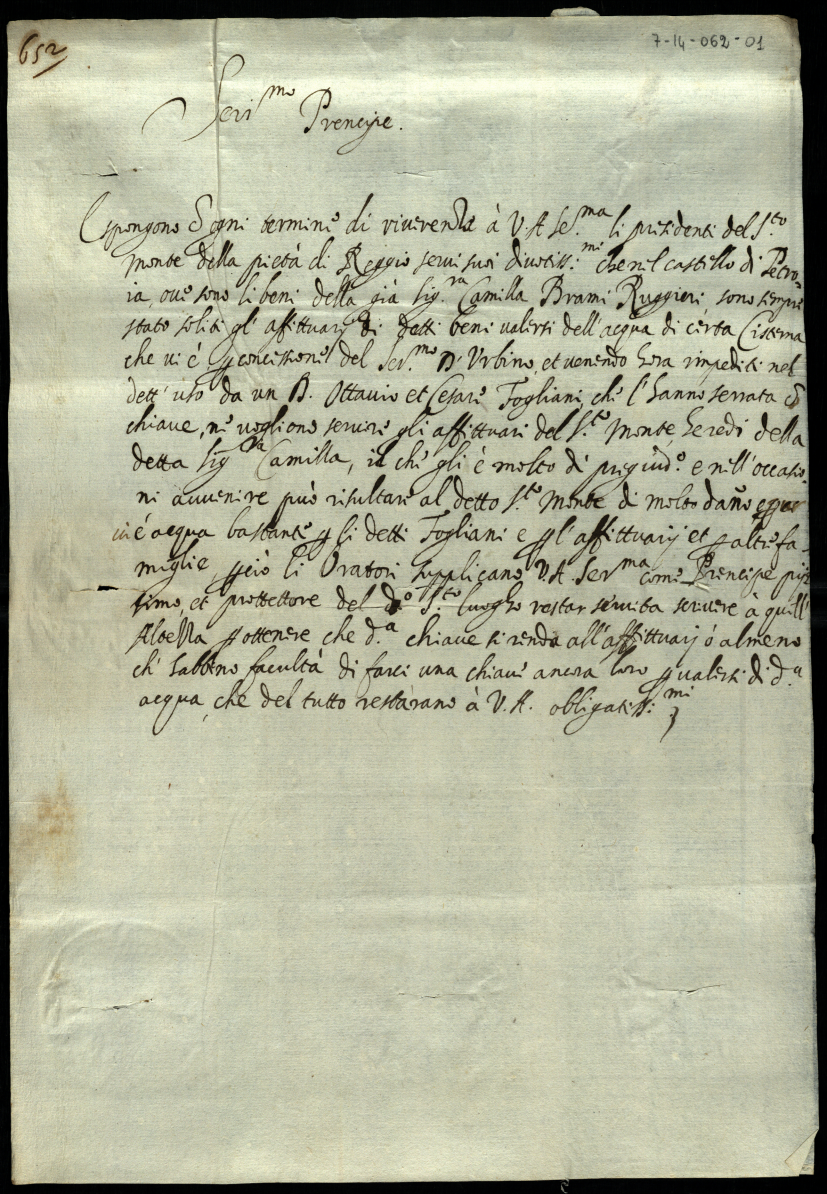 652
7-14-062-01
Ser.mo Prencipe.
Espongono cō ogni termine di riverenza à V. A. Se.ma li presidenti del S.to
Monte della pietà di Reggio servi suoi divotiss.mi che nel castello di Petro-
ia, ove sono li beni della già Sig.ra Camilla Brami Ruggieri sono sempre
stato soliti gl' affittuarij di detti beni valersi dell'acqua di certa Cisterna
che vi è ꝑ concessione del Ser.mo D' Urbino, et venendo hora impediti nel
dett' uso da un D. Ottavio et Cesare Fogliani, che l' hanno serrata cō
chiave, ne vogliono servire gli affittuari del S.to Monte heredi della
detta Sig.ra Camilla, il che gli è molto di pregiud.o e nell'occasio-
ni avvenire può risultare al detto S.to Monte di molto dano e pur
vi è acqua bastante ꝑ li detti Fogliani e ꝑ l' affittuarij et ꝑ altre fa-
miglie ꝑciò li Oratori supplicano V. A. Ser.ma come Prencipe pijs
simo, et prottettore del d.o S.to luogho restar servita scrivere à quell'
ꝑ ottenere che d.a chiave si renda all'affittuarij ò almeno
ch' habbino facultà di farci una chiave ancora loro ꝑ valersi di d.a
acqua, che del tutto restarano à V. A. obligatiss.mi